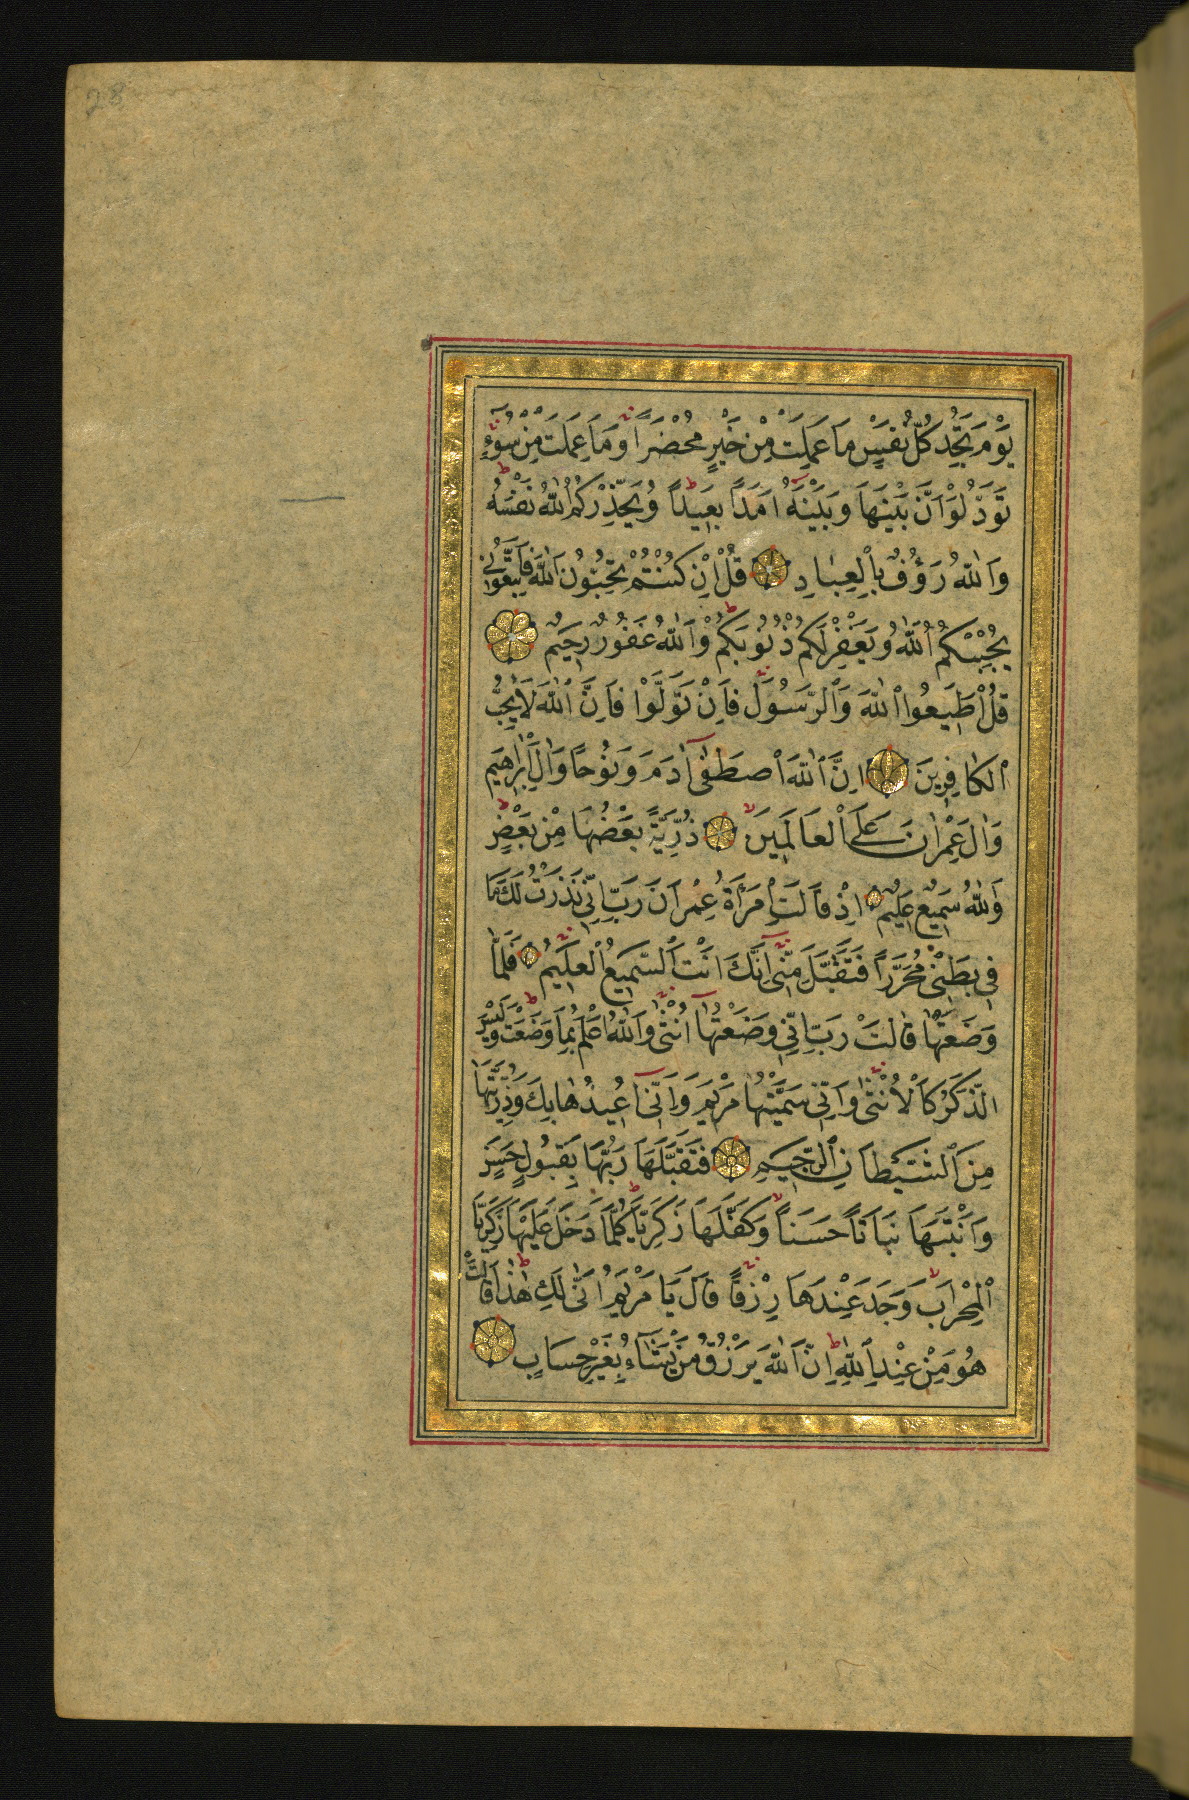 28
يَوْمَ تَجِدُ كُلُّ نَفْسٍ مَا عَمِلَتْ مِنْ خَيْرٍ مُحْضَرًا وَمَا عَمِلَتْ مِنْ سُوٓءٍ
تَوَدُّ لَوْ اَنَّ بَيْنَهَا وَبَيْنَهُٓ اَمَدًا بَعِيدًا وَيُحَذِّرُكُمُ اللّٰهُ نَفْسَهُ
وَاللّٰهُ رَؤُفٌ بِالْعِبَادِ قُلْ اِنْ كُنْتُمْ تُحِبُّونَ اللّٰهَ فَاتَّبِعُونِى
يُحْبِبْكُمُ اللّٰهُ وَيَغْفِرْ لَكُمْ ذُنُوبَكُمْ وَاللّٰهُ غَفُورٌ رَحِيمٌ
قُلْ اَطِيعُوا اللّٰهَ وَالرَّسُولَ فَاِنْ تَوَلَّوْا فَاِنَّ اللّٰهَ لَا يُحِبُّ
الْكَافِرِينَ اِنَّ اللّٰهَ اصْطَفٰٓى اٰدَمَ وَنُوحًا وَاٰلَ اِبْرٰهِيمَ
وَاٰلَ عِمْرٰنَ عَلَى الْعَالَمِينَ ذُرِّيَّةً بَعْضُهَا مِنْ بَعْضٍ
وَاللّٰهُ سَمِيعٌ عَلِيمٌ اِذْ قَالَتِ امْرَاَةُ عِمْرَانَ رَبِّ اِنِّى نَذَرْتُ لَكَ مَا
فِى بَطْنِى مُحَرَّرًا فَتَقَبَّلْ مِنِّىٓ اِنَّكَ اَنْتَ السَّمِيعُ الْعَلِيمُ فَلَمَّا
وَضَعَتْهَا قَالَتْ رَبِّ اِنِّى وَضَعْتُهَٓا اُنْثٰى وَاللّٰهُ اَعْلَمُ بِمَا وَضَعَتْ وَلَيْسَ
الذَّكَرُ كَالْاُنْثٰى وَاِنِّى سَمَّيْتُهَا مَرْيَمَ وَاِنِّىٓ اُعِيذُهَا بِكَ وَذُرِّيَّتَهَا
مِنَ الشَّيْطَانِ الرَّجِيمِ فَتَقَبَّلَهَا رَبُّهَا بِقَبُولٍ حَسَنٍ
وَاَنْبَتَهَا نَبَاتًا حَسَنًا وَكَفَّلَهَا زَكَرِيَّا كُلَّمَا دَخَلَ عَلَيْهَا زَكَرِيَّا
الْمِحْرَابَ وَجَدَ عِنْدَهَا رِزْقًا قَالَ يَا مَرْيَمُ اَنّٰى لَكِ هٰذَا قَالَتْ
هُوَ مِنْ عِنْدِ اللّٰهِ اِنَّ اللّٰهَ يَرْزُقُ مَنْ يَشَٓاءُ بِغَيْرِ حِسَابٍ